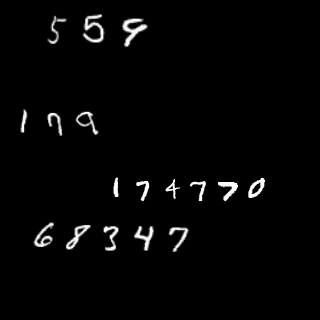 559
179
174770
68347